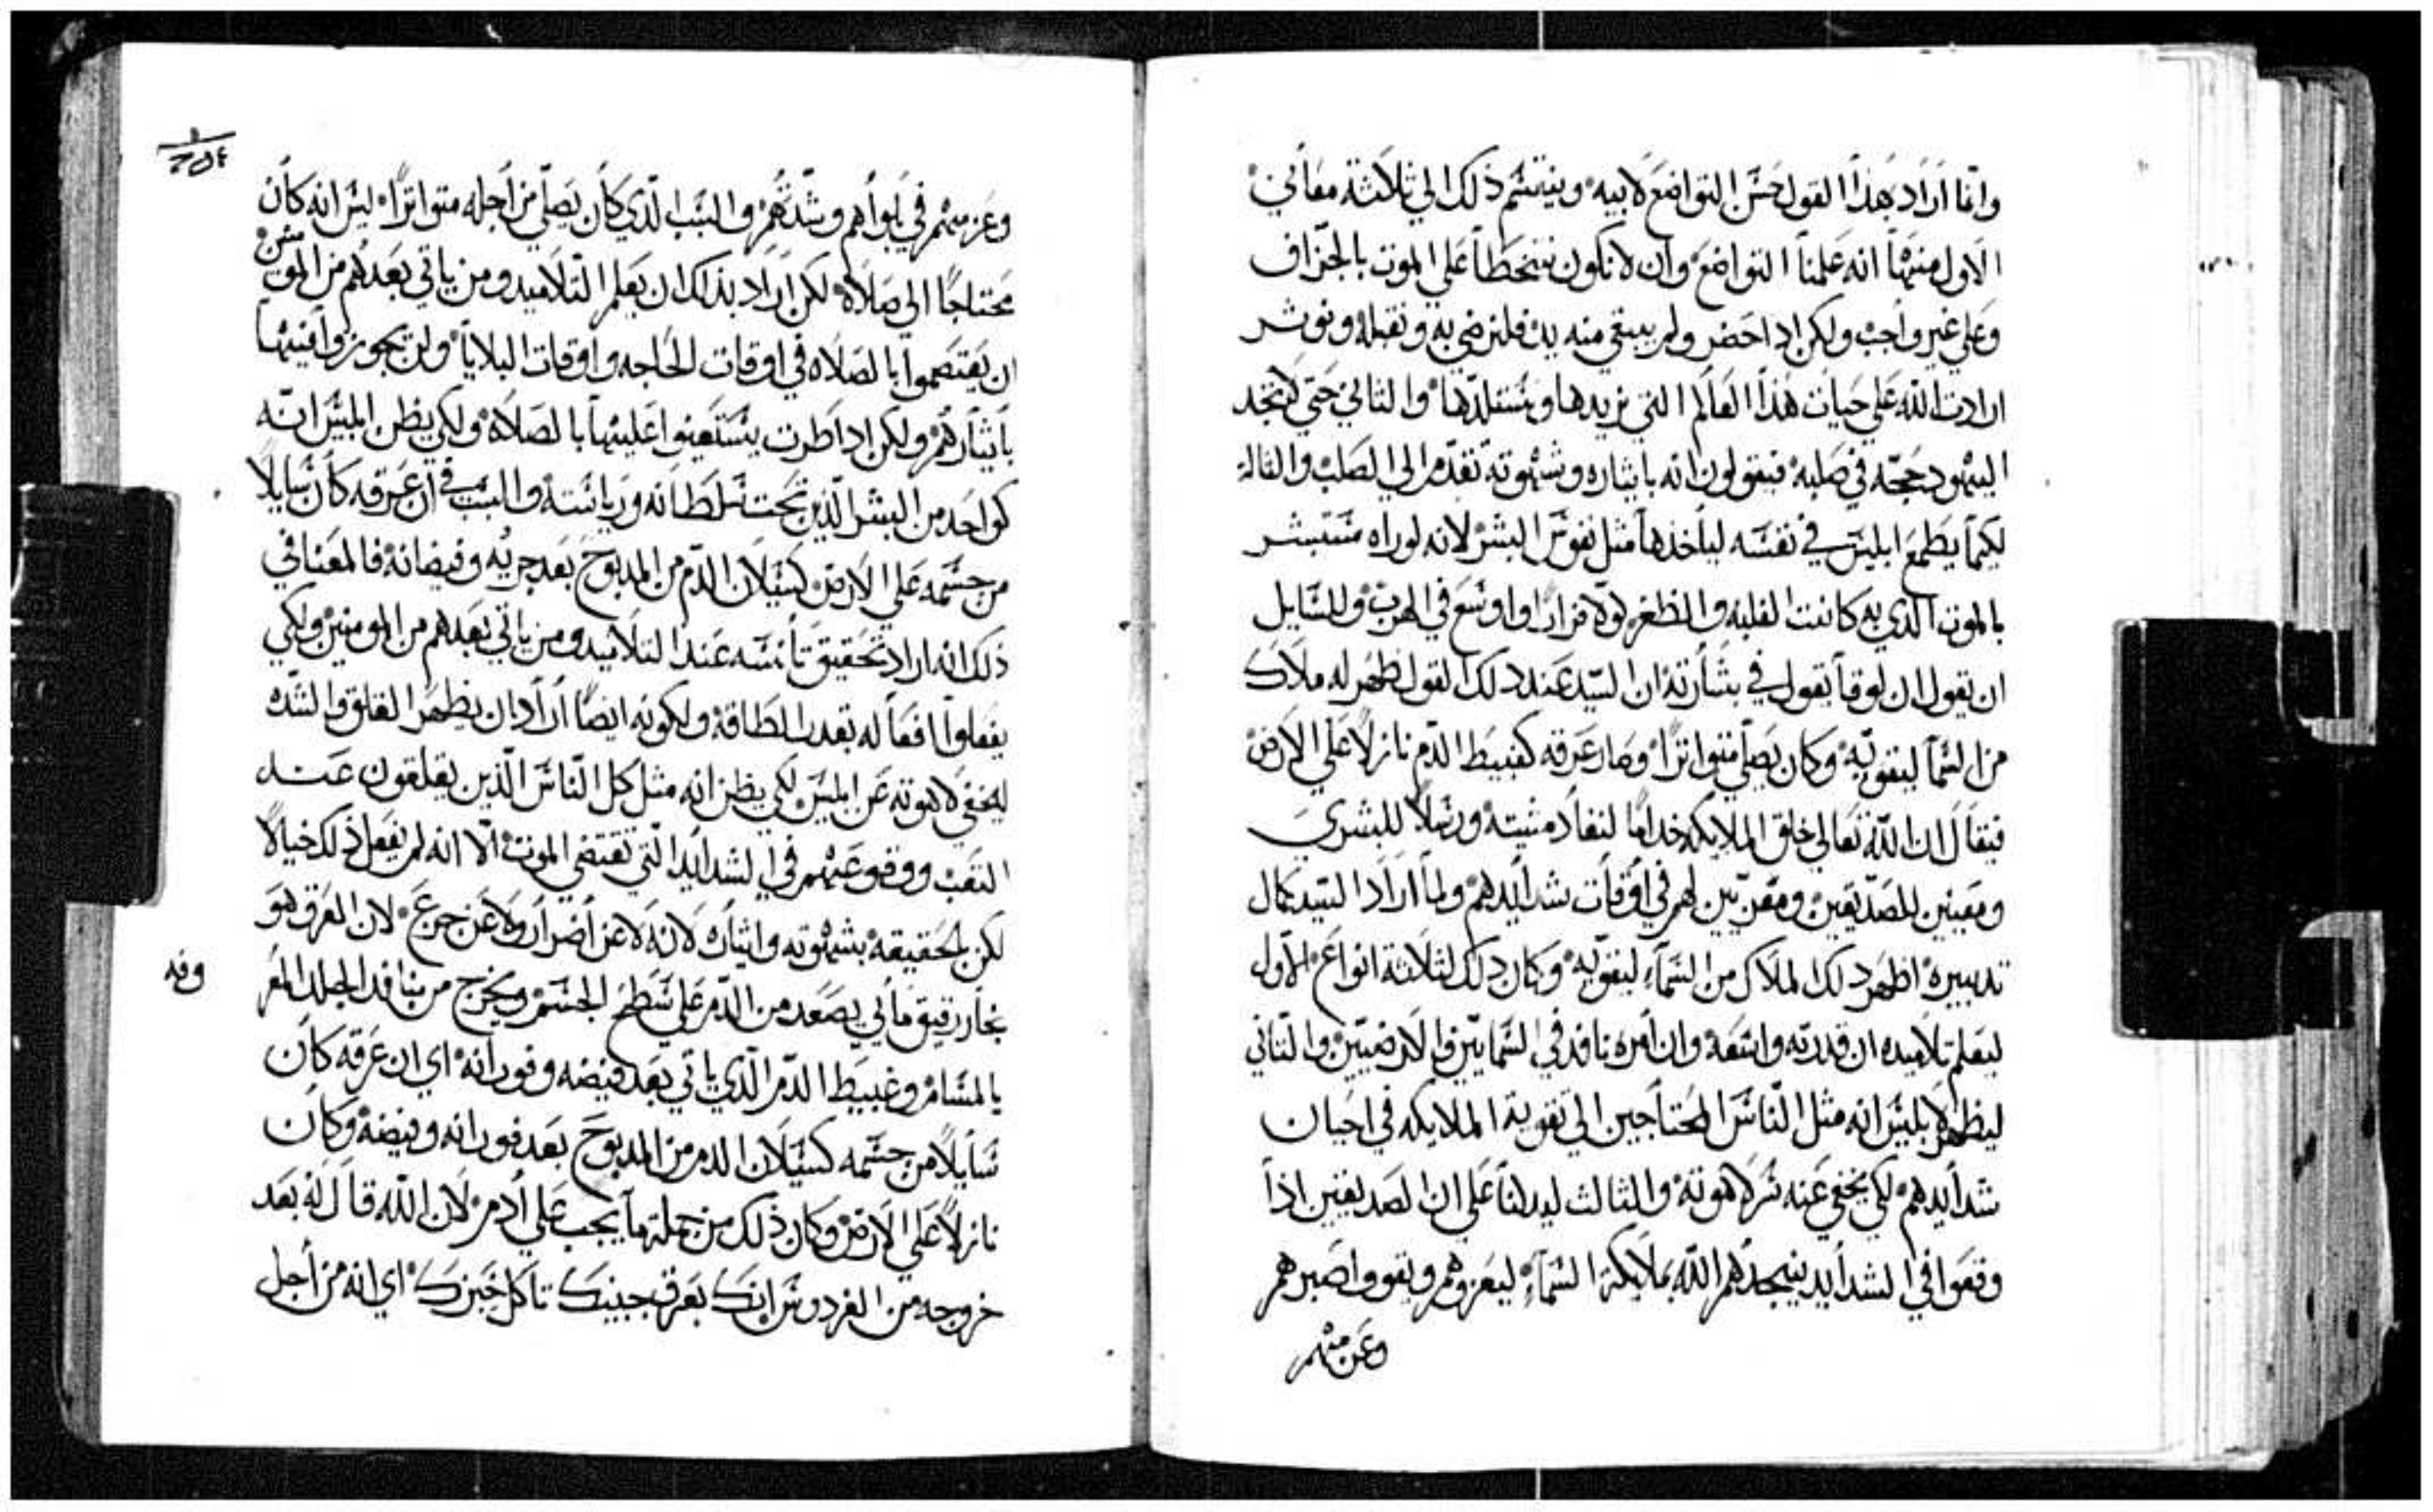 وانما اراد بهذا القول حسن التواضع لابيه وينقسم ذلك الي ثلاثة معاني
الاول منها انه علمنا التواضع وان لا نكون نتخطا علي الموت بالجزاف
وعلي غير واجب ولكن اذا حضر ولم يبقي منه بد فلنرضي به ونقبله ونوثر
ارادت الله علي حيات هذا العالم التي نريدها ونستلذها والثاني حتي لا تجد
اليهود حجه في صلبه فيقولون انه بايثاره وشهوته تقدم الي الصلب والثالث
لكيما يطمع ابليس في نفسه لياخذها مثل نفوس البشر لانه لو راه مستبشر
بالموت الذي به كانت الغلبه والظفر لولا فرارا واوسع في الهرب وللسايل
ان يقول ان لوقا يقول في بشارته ان السيد عند ذلك القول ظهر له ملاك
من السما ليقويه وكان يصلي متواترا وصار عرقه كغبيط الدم نازلا علي الارض
فيقال ان الله تعالي خلق الملايكه خداما لنفاد مشيته ورسلا للبشري
ومعينين للصديقين ومقربين لهم في اوقات شدايدهم ولما اراد السيد كمال
تدبيره اظهر ذلك الملاك من السماء ليقويه وكان ذلك لثلاثة انواع الاول
ليعلم تلاميده ان قدرته واسعه وان امره نافد في السمايين والارضيين والثاني
ليظهر لابليس انه مثل الناس المحتاجين الي تقوية الملايكه في احيان
شدايدهم لكي يخفي عنه سر لاهوته والثالث ليدلنا علي ان الصديقين اذا
وقعوا في الشدايد ينجدهم الله بملايكة السماء ليعزوهم ويقووا صبرهم
وعزمهم
وعزمهم في بلواهم وشدتهم والسبب الذي كان يصلي من اجله متواترا ليس انه كان
محتاجا الي صلاه لكن اراد بذلك ان يعلم التلاميد ومن ياتي بعدهم من المومنين
ان يعتصموا بالصلاه في اوقات الحاجه واوقات البلايا ولن يجوزوا فيها
بايثارهم ولكن اذا طرت يستعينوا عليها بالصلاه ولكي يظن ابليس انه
كواحد من البشر الذين تحت سلطانه ورياسته والسبب في ان عرقه كان سايلا
من جسمه علي الارض كسيلان الدم من المدبوح بعد جريه وفيضانه فالمعنا في
ذلك انه اراد تحقيق تانسه عند التلاميد ومن ياتي بعدهم من المومنين ولكي
يفعلوا افعاله بقدر الطاقه ولكونه ايضا اراد ان يظهر القلق والشده
ليخفي لاهوته عن ابليس لكي يظن انه مثل كل الناس الذين يقلقون عند
التعب ووقوعهم في الشدايد التي تقتضي الموت الا انه لم يفعل ذلك خيالا
لكن بالحقيقه بشهوته وايثاره لانه لا عن اضرار ولا عن جزع لان العرق هو
بخار رقيق مائي يصعد من الدم علي سطح الجسم ويخرج من منافد الجلد المعر
وفه
بالمسام وغبيط الدم الذي ياتي بعد فيضه وفورانه اي ان عرقه كان
سايلا من جسمه كسيلان الدم من المدبوح بعد فورانه وفيضه وكان
نازلا علي الارض وكان ذلك من جملة ما يجب علي ادم لان الله قال له بعد
خروجه من الفردوس انك بعرق جبينك تاكل خبزك اي انه من اجل